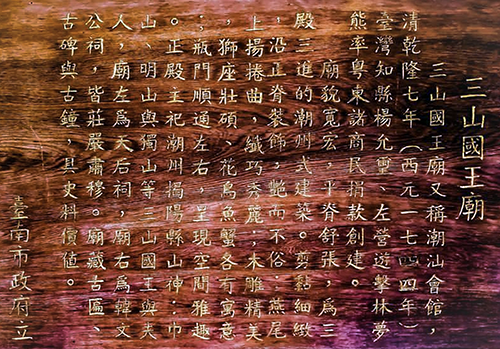 三山國王廟
三山國王廟又稱潮汕會館，
清乾隆七年（西元一七四四年）
臺灣知縣楊允璽、左營遊擊林夢
熊率粵東諸商民捐款創建。
廟貌寬宏，平脊舒張，為三
殿三進的潮州式建築。剪黏細緻
，沿正脊裝飾，艷而不俗；燕尾
上揚捲曲，纖巧秀麗；木雕精美
，獅座壯碩、花鳥魚蟹各有寓意
；瓶門順通左右，呈現空間雅趣
。正殿主祀潮州揭陽縣山神：巾
山、明山與獨山等三山國王與夫
人，廟左為天后祠，廟右為韓文
公祠，皆莊嚴肅穆。廟藏古匾、
古碑與古鐘，具史料價值。
臺南市政府立